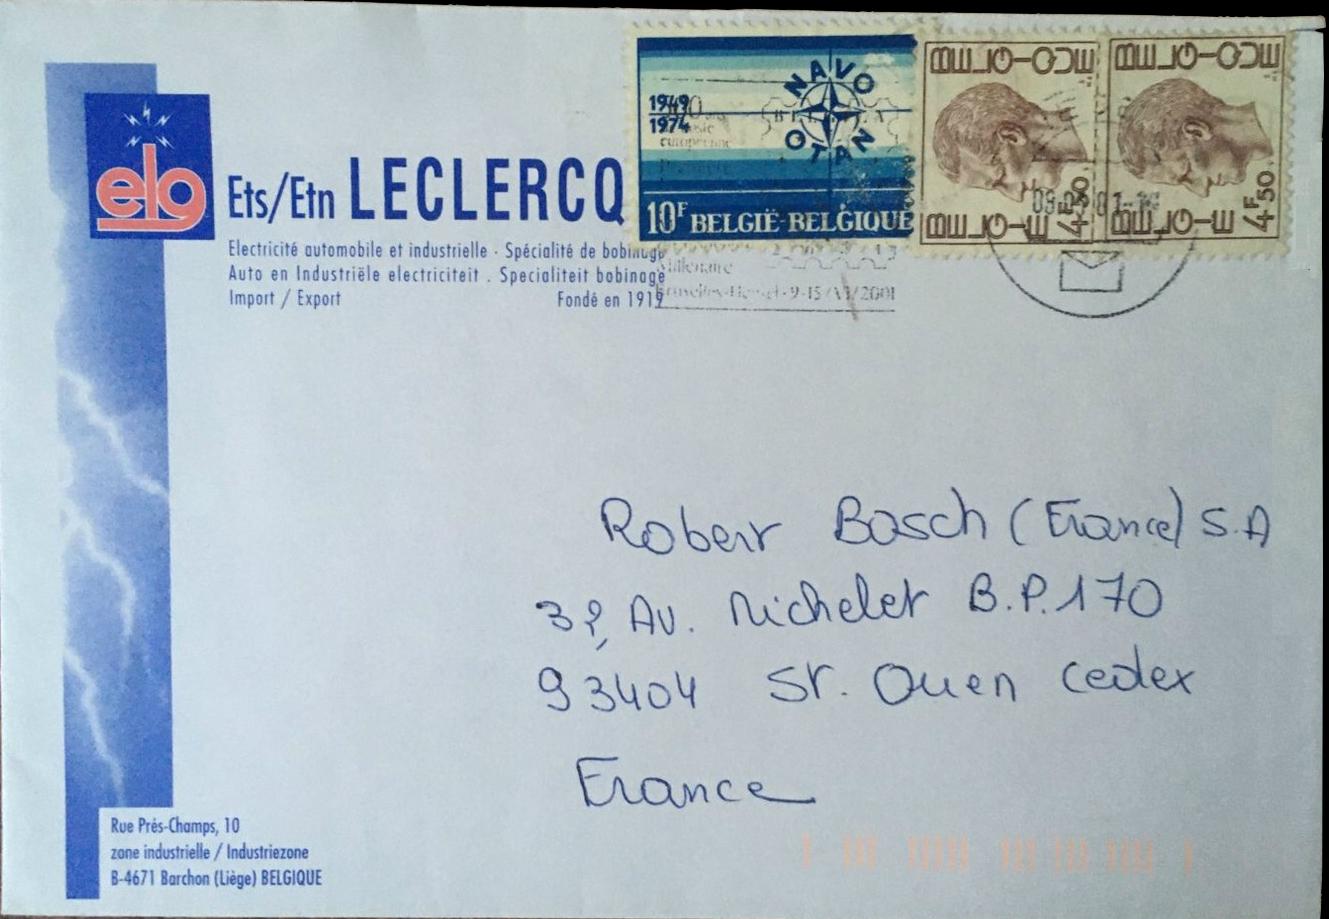 elg
Ets/Etn LECLERCQ
Electricité automobile et industrielle - Spécialité de bobinage
Auto en Industriële electriciteit . Specialiteit bobinage
Import / Export Fondé en 1919
1949
1974
NAVO
OTAN
10F BELGIË-BELGIQUE
BELGIQUE
BELGIE
4F50
BELGIQUE
BELGIE
4F50
européenne
Millénaire
Bruxelles-Heysel-9-15/VI/2001
Robert Bosch (France) S.A
32, Av. Michelet B.P. 170
93404 St. Ouen Cedex
France
Rue Prés-Champs, 10
zone industrielle / Industriezone
B-4671 Barchon (Liège) BELGIQUE